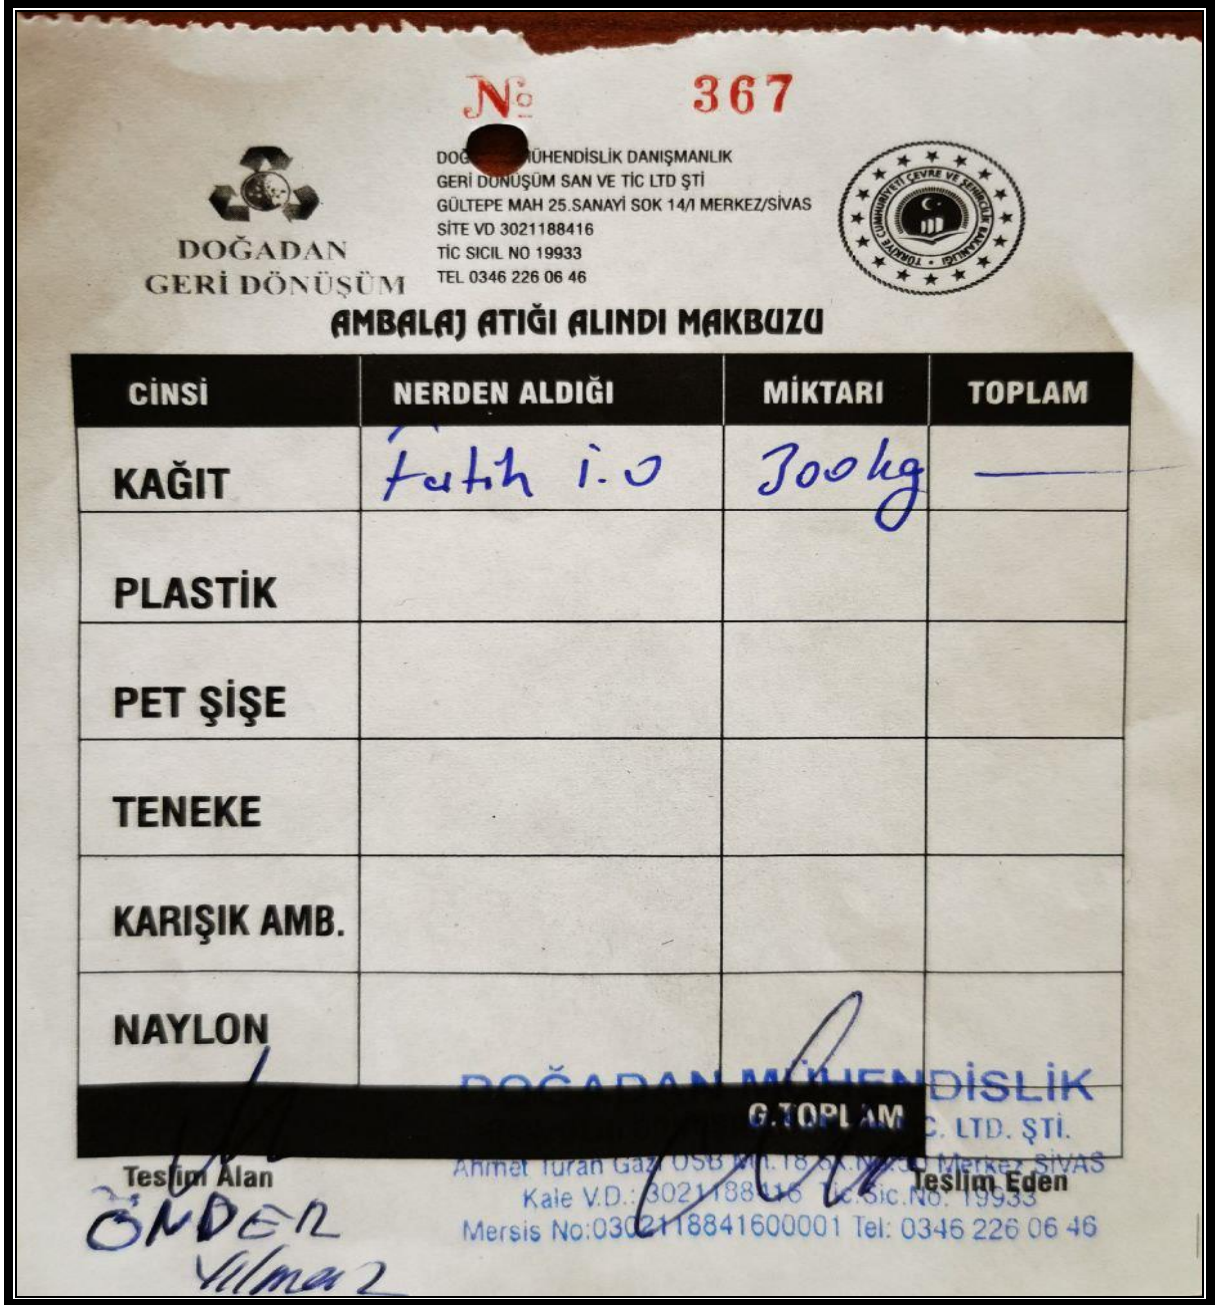 No 367
DOĞ MÜHENDİSLİK DANIŞMANLIK
GERİ DÖNÜŞÜM SAN VE TİC LTD ŞTİ
GÜLTEPE MAH 25.SANAYİ SOK 14/I MERKEZ/SİVAS
SİTE VD 3021188416
TİC SICIL NO 19933
TEL 0346 226 06 46
DOĞADAN
GERİ DÖNÜŞÜM
TÜRKİYE CUMHURİYETİ ÇEVRE VE ŞEHİRCİLİK BAKANLIĞI
AMBALAJ ATIĞI ALINDI MAKBUZU
CİNSİ NERDEN ALDIĞI MİKTARI TOPLAM
KAĞIT Fatih i.o 300 kg —
PLASTİK
PET ŞİŞE
TENEKE
KARIŞIK AMB.
NAYLON
G.TOPLAM
DOĞADAN MÜHENDİSLİK
C. LTD. ŞTİ.
Ahmet Turan Gazi OSB Mh. 18 Merkez SİVAS
Kale V.D.: 3021188416 Tic.Sic.No: 19933
Mersis No:0302118841600001 Tel: 0346 226 06 46
Teslim Alan Teslim Eden
ÖNDER
Yılmaz